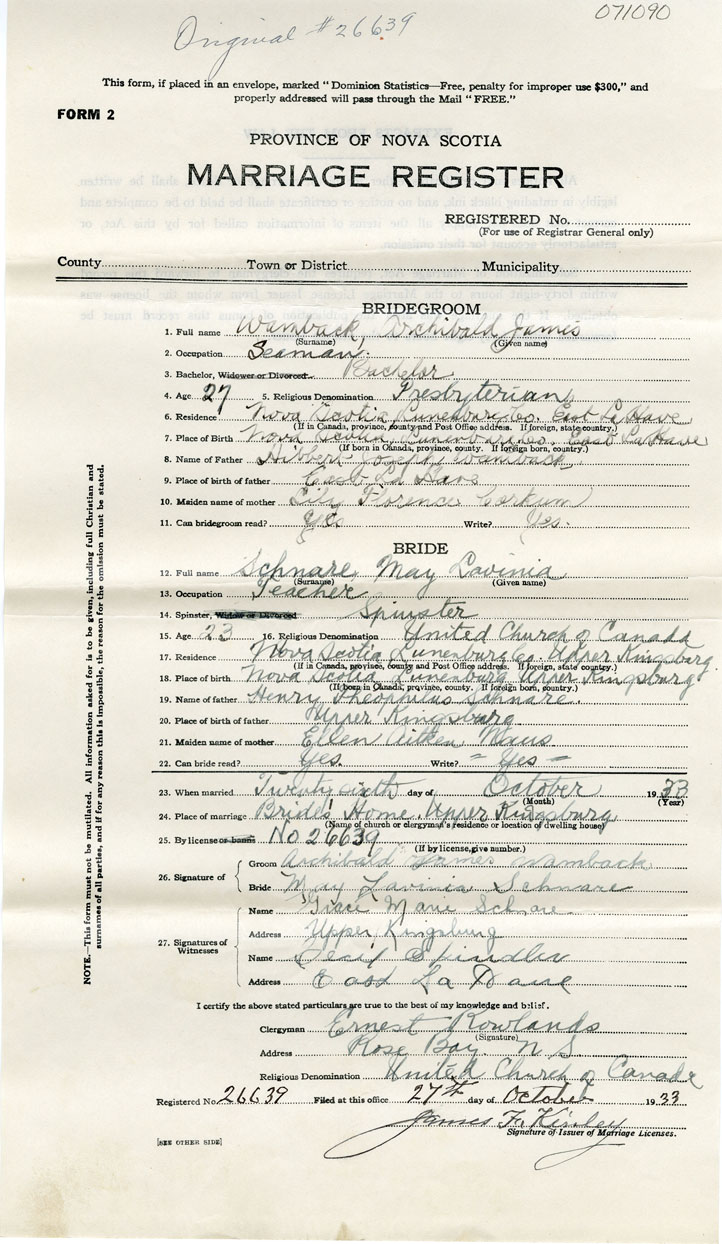 Original #26639
071090
This form, if placed in an envelope, marked "Dominion Statistics—Free, penalty for improper use $300," and
properly addressed will pass through the Mail "FREE."
FORM 2
PROVINCE OF NOVA SCOTIA
MARRIAGE REGISTER
REGISTERED No.
(For use of Registrar General only)
County Town or District Municipality
BRIDEGROOM
1. Full name Wamback, Archibald James
(Surname) (Given name)
2. Occupation Seaman.
3. Bachelor, Widower or Divorced Bachelor
4. Age 27 5. Religious Denomination Presbyterian
6. Residence Nova Scotia Lunenburg Co. East La Have
(If in Canada, province, county and Post Office address. If foreign, state country.)
7. Place of Birth Nova Scotia, Lunenburg Co. East La Have
(If born in Canada, province, county. If foreign born, country.)
8. Name of Father Hibbert Joseph Wamback
9. Place of birth of father East La Have
10. Maiden name of mother Lily Florence Corkum
11. Can bridegroom read? Yes Write? Yes.
BRIDE
12. Full name Schnare, May Lavinia
(Surname) (Given name)
13. Occupation Teacher
14. Spinster, Widow or Divorced Spinster
15. Age 23 16. Religious Denomination United Church of Canada
17. Residence Nova Scotia Lunenburg Co Upper Kingsburg.
(If in Canada, province, county and Post Office address. If foreign, state country.)
18. Place of birth Nova Scotia Lunenburg Upper Kingsburg
(If born in Canada, province, county. If foreign born, country.)
19. Name of father Henry Theophilus Schnare.
20. Place of birth of father Upper Kingsburg
21. Maiden name of mother Ellen Aitken
22. Can bride read? Yes. Write? "Yes"
23. When married Twenty sixth day of October 1933
(Month) (Year)
24. Place of marriage Bride's Home. Upper Kingsburg
(Name of church or clergyman's residence or location of dwelling house)
25. By license or banns No 26639
(If by license, give number.)
26. Signature of
Groom Archibald James Wamback
Bride May Lavinia Schnare
27. Signatures of Witnesses
Name Grace Marie Schnare
Address Upper Kingsburg
Name Cecil Spindler
Address East La Have
I certify the above stated particulars are true to the best of my knowledge and belief.
Clergyman Ernest Rowlands
(Signature)
Address Rose Bay. N S
Religious Denomination United Church of Canada
Registered No. 26639 Filed at this office 27th day of October 1933
James F. Kinley
Signature of Issuer of Marriage Licenses.
[SEE OTHER SIDE]
NOTE.—This form must not be mutilated. All information asked for is to be given, including full Christian and
surnames of all parties, and if for any reason this is impossible, the reason for the omission must be stated.